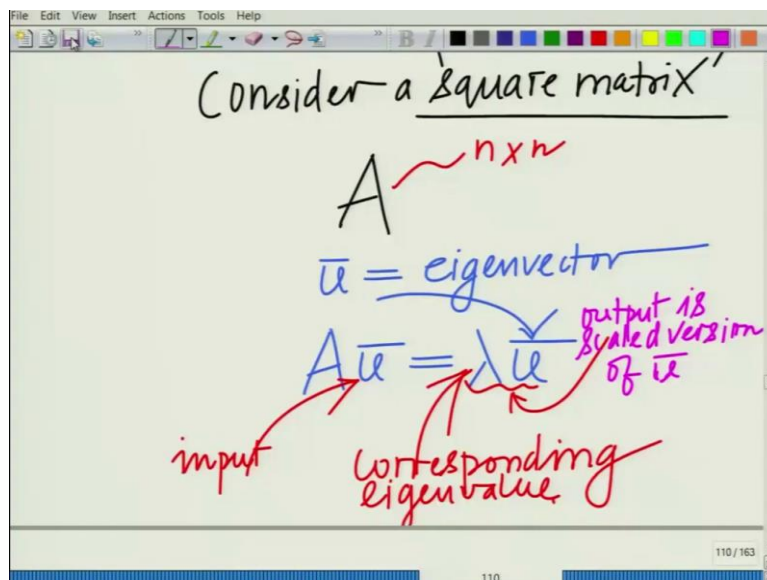 File Edit View Insert Actions Tools Help
B I
Consider a 'square matrix'
A n x n
u̅ = eigenvector
A u̅ = λ u̅
output is
scaled version
of u̅
input
corresponding
eigenvalue
110 / 163
110